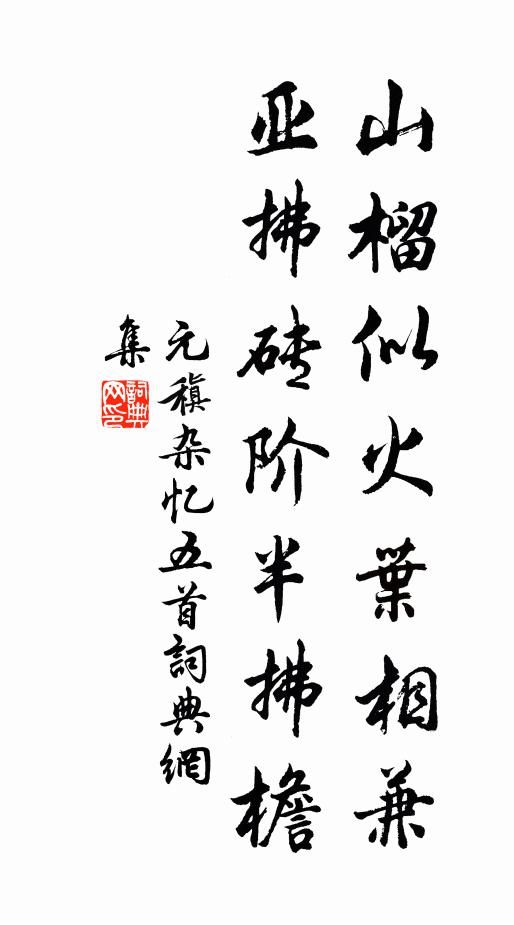 山榴似火葉相兼
亚拂砖阶半拂檐
元稹杂忆五首詞典網
集
詞典网印